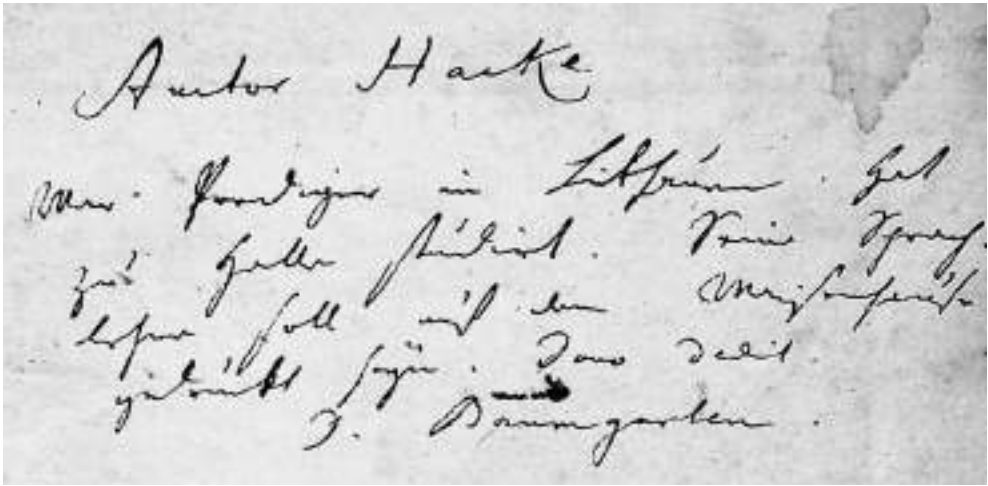 Auctor Haake
War Prediger in Litthauen. hat
zu Halle studirt. Seine Sprach-
lehre soll auf dem Waysenhause
gedruckt seyn. Dono dedit
D. Baumgarten.